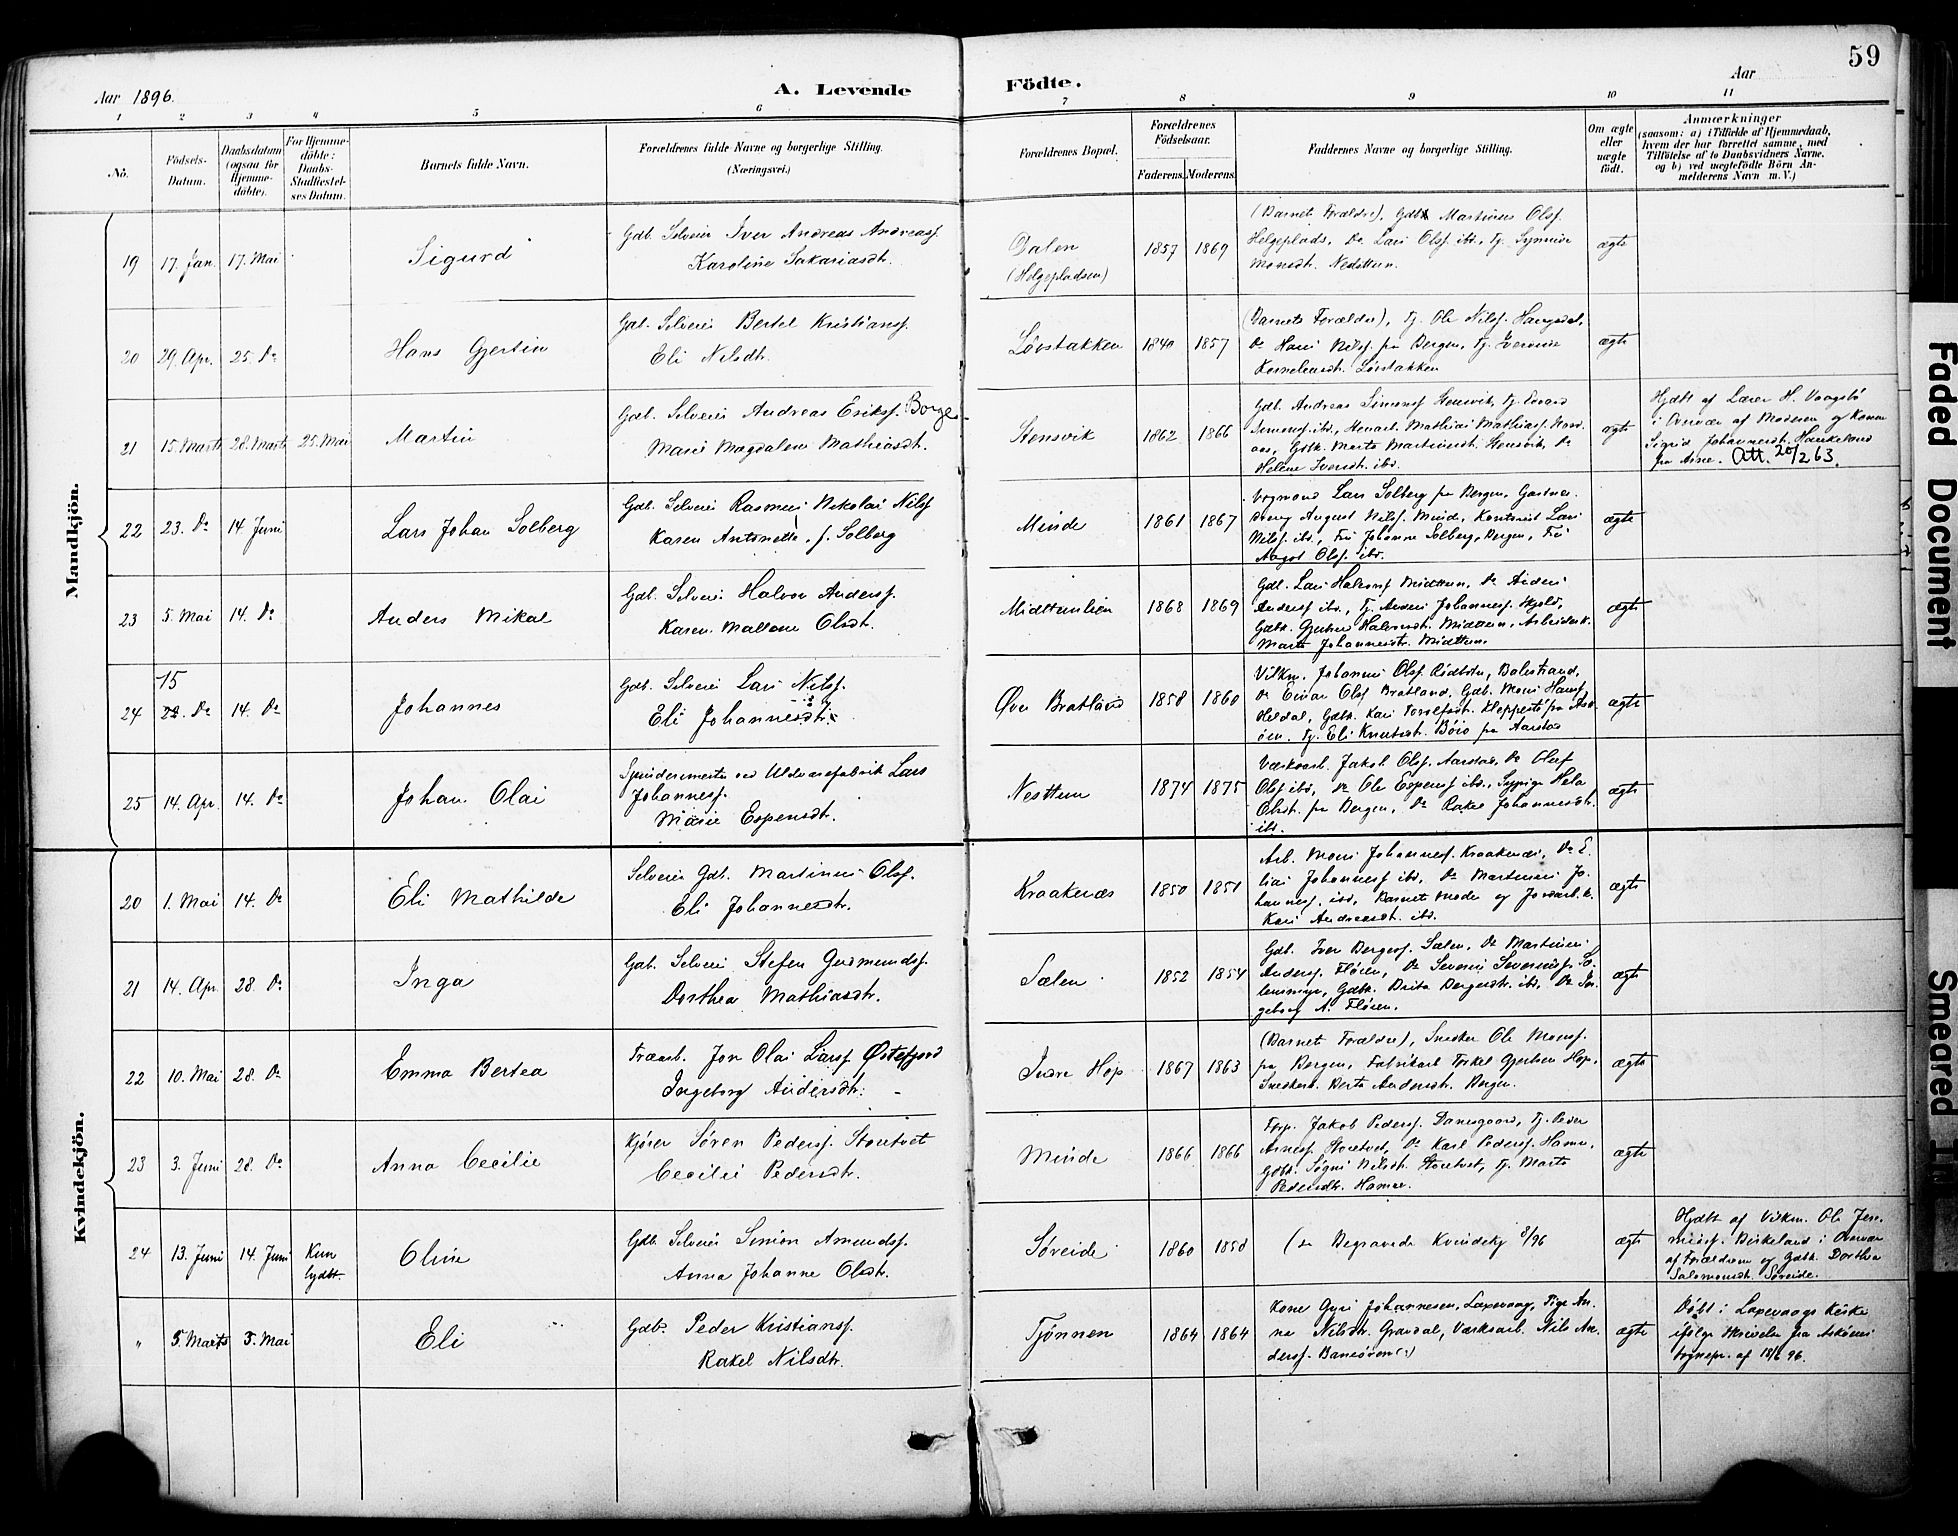 59
Aar 1896.
A. Levende Födte.
Aar
1 2 3 4 5 6 7 8 9 10 11
No.
Födsels-Datum.
Daabsdatum (ogsaa for Hjemmedöbte).
For Hjemmedöbte: Daabs-Stadfæstelses Datum.
Barnets fulde Navn.
Forældrenes fulde Navne og borgerlige Stilling. (Næringsvei.)
Forældrenes Bopæl.
Forældrenes Födselsaar.
Faderens. Moderens.
Faddernes Navne og borgerlige Stilling.
Om ægte eller uægte födt.
Anmærkninger
(saasom: a) i Tilfælde af Hjemmedaab, hvem der har forrettet samme, med Tilföielse af to Daabsvidners Navne, og b) ved uægtefödte Börn Anmelderens Navn m. V.)
Mandkjön.
19 17. Jan. 17. Mai Sigurd
Gdb. Selveier Iver Andreas Andreasf.
Karoline Sakariasdtr.
Dalen
(Helgepladsen)
1857 1869
(Barnets Forældre), Gdbk Martinus Olsf.
Helgeplads, Do Lars Olsf. ibd., Tj. Synneve
Monsdtr. Nesttun.
ægte
20 29. Apr. 25. Do Hans Gjertin
Gdb. Selveier Bertel Kristiansf.
Eli Nilsdtr.
Løvstakken
1840 1857
(Barnets Forældre), Tj. Ole Nilsf. Haugsdal,
Do Hans Nilsf. fra Bergen, Tj.
Korneliusdtr. Løvstakken
ægte
21 15. Marts 28. Marts 25. Mai Martin
Gdb. Selveier Andreas Eriksf. Borge
Marie Magdalene Mathiasdtr.
Stensvik
1862 1866
Gdb. Andreas Simonsf Stensvik, Tj. Edvard
Simonsf. ibd., Stenarb. Mathias Mathiasf. Nordaas, Gdbk. Marta Martinsdtr. Stensvik, Do
Helene Iversdtr. ibd.
ægte
Hjdbt af Lærer H. Vaagsbø
i Overvær af Moderen og Kone
Sigrid Johannesdtr. Haukeland
fra Arne. Att. 20/2 63.
22 23. Do 14. Juni Lars Johan Solberg
Gdb. Selveier Rasmus Nikolai Nilsf
Karen Antonette, f. Solberg
Minde
1861 1867
Vognmand Lars Solberg fra Bergen, Gartner
Georg August Nilsf. Minde, Kontorist Lars
Nilsf. ibd., Fru Johanne Solberg, Bergen, Fru
Aagot Olsf. ibd.
ægte
23 5. Mai 14. Do Anders Mikal
Gdb. Selveier Halvor Andersf.
Karen Mallene Olsdtr.
Midttunlien
1868 1869
Gdb. Lars Halvorsf Midttun, Do Anders
Andersf ibd., Tj. Anders Johannesf. Skjold,
Gdbk. Gjertrud Halvorsdtr. Midttun, Arbeiderk.
Marta Johannesdtr. Midttun.
ægte
24 15 22. Do 14. Do Johannes
Gdb. Selveier Lars Nilsf.
Eli Johannesdtr.
Øvre Bratland
1858 1860
Vilkm. Johannes Olsf. Balestrand,
Do Einar Olsf Bratland, Gdb. Mons Hansf
Heldal, Gdbk. Kari Torolfsdtr. Kleppestø fra Askøen. Tj. Eli Knutsdtr. Børø fra Aarstad
ægte
25 14. Apr. 14. Do Johan Olai
Spindermester ved Uldvarefabrik Lars
Johannesf.
Marie Espensdtr.
Nesttun
1874 1875
Værksarb. Jakob Olsf. Aarstad, Do Olaf
Olsf ibd., Do Ole Espensf ibd., Sypige Hela
Olsdtr. fra Bergen, Do Rakel Johannesdtr.
ibd.
ægte
Kvindekjön.
20 1. Mai 14. Do Eli Mathilde
Selveier Gdb. Martinus Olsf.
Eli Johannesdtr.
Kraakenæs
1850 1851
Arb. Mons Johannesf. Kraakenæs, Do Elias Johannesf ibd., Do Martinus Johannesf. ibd., Barnets Moder og Jordarb.k.
Kari Andreasdtr. ibd.
ægte
21 14. Apr. 28. Do Inga
Gdb. Selveier Stefen Gudmundsf.
Dorthea Mathiasdtr.
Sælen
1852 1854
Gdb. Iver Bergesf. Sælen, Do Martinus
Andersf. Fløien, Do Severin Severinsf. Sælensminde, Gdbk. Brita Bergesdtr. ibd., Do Ingeborg A. Fløien.
ægte
22 10. Mai 28. Do Emma Bertea
Træarb. Jon Olai Larsf. Østefjord
Ingeborg Andersdtr.
Indre Hop
1867 1863
(Barnets Forældre), Snedker Ole Monsf.
fra Bergen, Fabrikarb Torkel Gjertsen Hop,
Snedkerk. Berta Andersdtr. Bergen.
ægte
23 3. Juni 28. Do Anna Cecilie
Kjører Søren Pedersf. Storetvet
Cecilie Pedersdtr.
Minde
1866 1866
Forp. Jakob Pedersf. Danesgaard, Tj. Peder
Arnesf. Storetvet, Do Karl Pedersf. Hamre,
Gdbk. Søgni Nilsdtr. Storetvet, Tj. Marta
Pedersdtr. Hamre.
ægte
24 13. Juni 14. Juni Kun hjdbt. Oline
Gdb. Selveier Simon Amundsf.
Anna Johanne Olsdtr.
Søreide
1860 1858
(se Begravede Kvindekj 8/96
ægte
Hjdbt af Vilkm. Ole Jeremiasf. Birkeland i Overvær
af Forældrene og Gdbk. Dorthea
Salomonsdtr. Søreide.
" 5. Marts 3. Mai Eli
Gdb. Peder Kristiansf.
Rakel Nilsdtr.
Tjønnen
1864 1864
Kone Guri Johannesen, Laxevaag, Pige Anna Nilsdtr. Gravdal, Værksarb. Nils Andersf. Baneøren(?)
ægte
Døbt i Laxevaags Kirke
ifølge Skrivelse fra Askøens
sognepr. af 18/6 96.
Faded Document
Smeared Ink